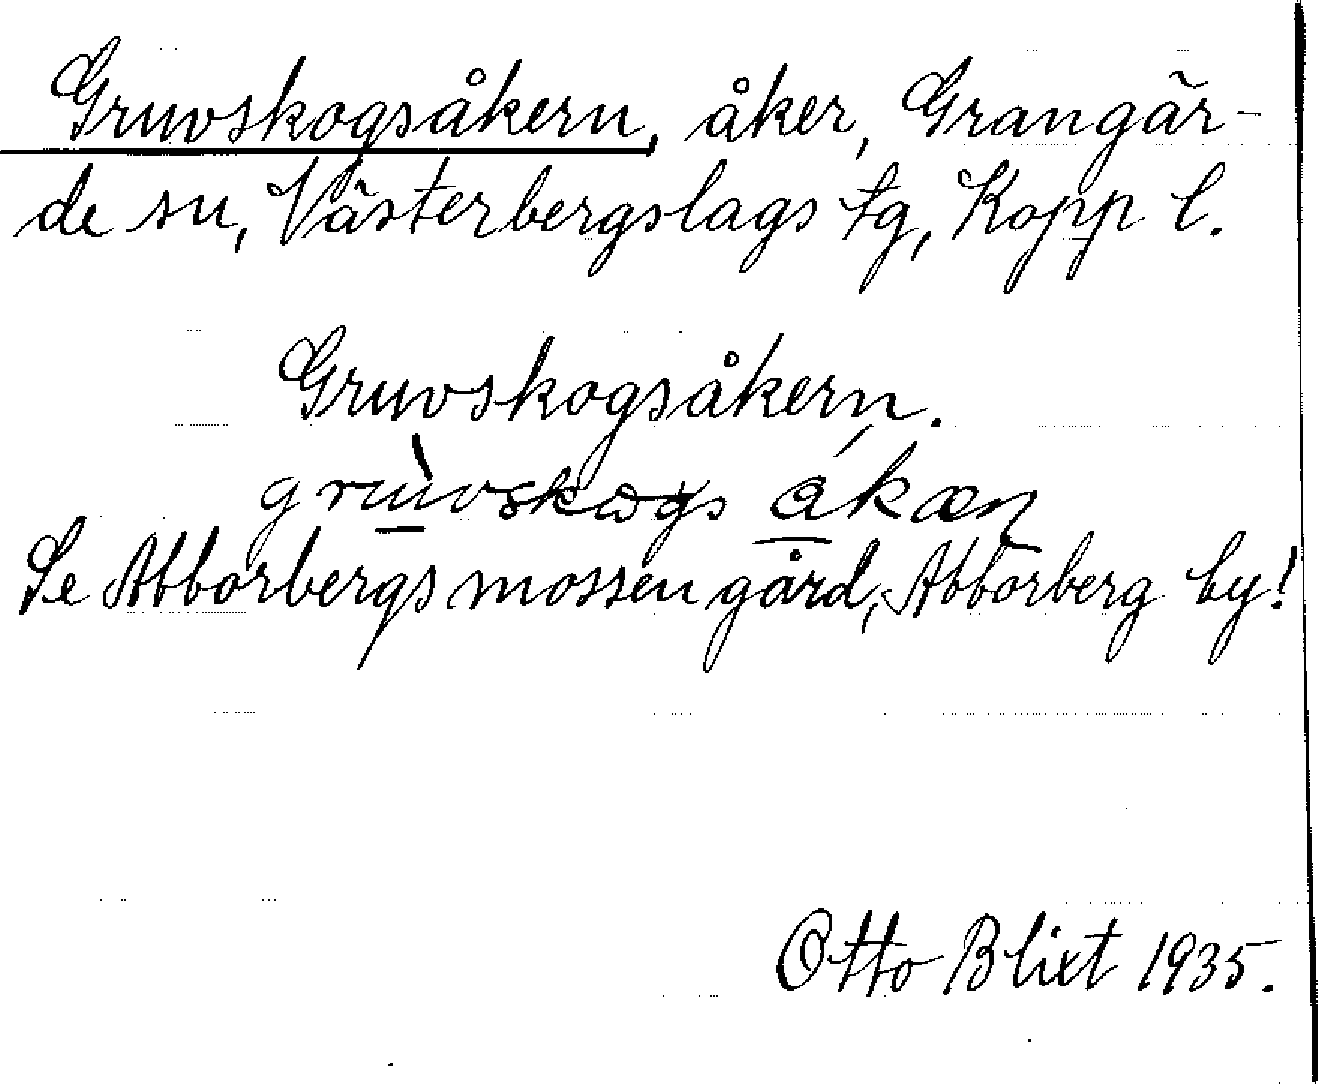 Gruvskogsåkern, åker, Grangär-
de sn, Västerbergslags tg, Kopp l.
Gruvskogsåkern.
grùvskωgs ákæn
Se Abborbergsmossen gård, Abborberg by!
Otto Blixt 1935.